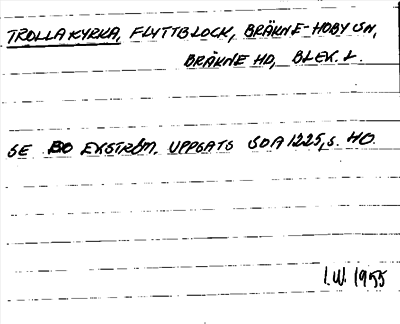 TROLLAKYRKA, FLYTTBLOCK, BRÄKNE-HOBY SN,
BRÄKNE HD, BLEK. L.
SE BO EKSTRÖM, UPPSATS SOA 1225, S. 40.
I.W. 1955